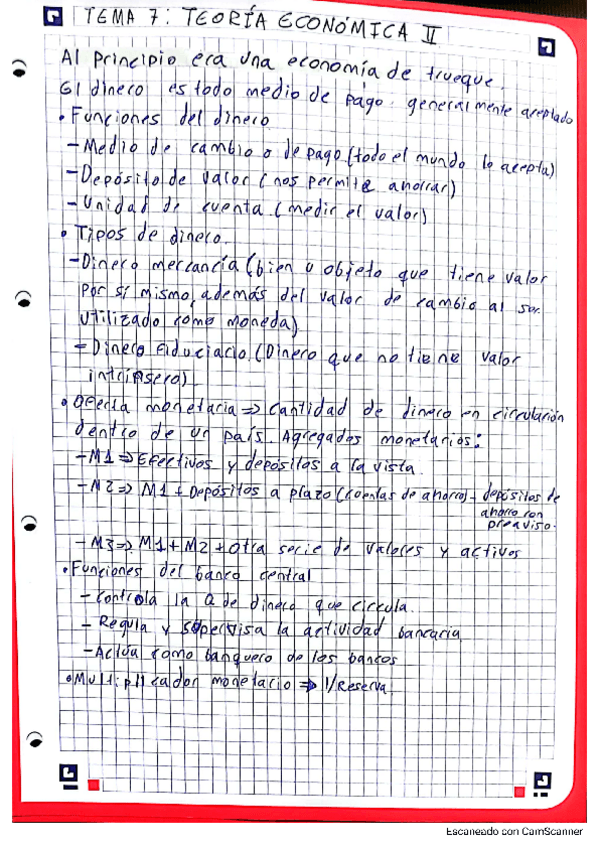 TEMA 7: TEORÍA ECONÓMICA II
Al principio era una economía de trueque.
El dinero es todo medio de pago generalmente aceptado
• Funciones del dinero
- Medio de cambio o de pago (todo el mundo lo acepta)
- Depósito de valor (nos permite ahorrar)
- Unidad de cuenta (medir el valor)
• Tipos de dinero.
- Dinero mercancía (bien u objeto que tiene valor
por sí mismo, además del valor de cambio al ser
utilizado como moneda)
- Dinero fiduciario (Dinero que no tiene valor
intrínseco)
• Oferta monetaria => Cantidad de dinero en circulación
dentro de un país. Agregados monetarios:
- M1 => Efectivos y depósitos a la vista.
- M2 => M1 + Depósitos a plazo (cuentas de ahorro) - depósitos de
ahorro con
preaviso.
- M3 => M1 + M2 + Otra serie de valores y activos
• Funciones del banco central
- Controla la Q de dinero que circula.
- Regula y supervisa la actividad bancaria
- Actúa como banquero de los bancos
• Multiplicador monetario => 1/Reserva
Escaneado con CamScanner